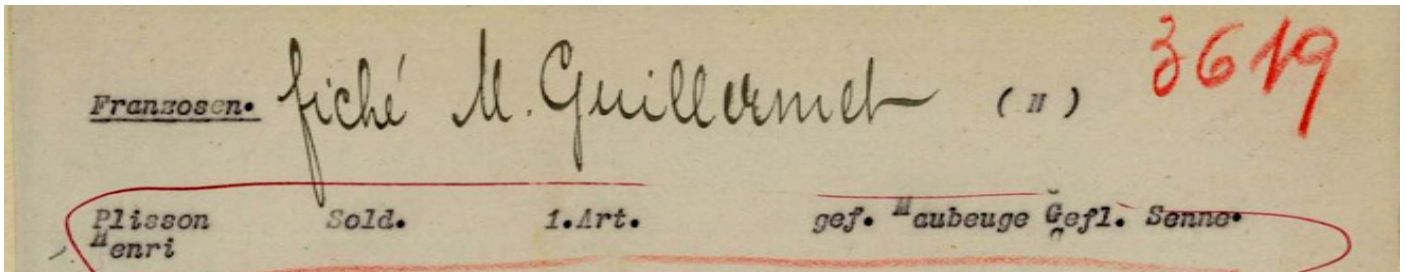 Franzosen. fiché M. Guillermet 3619
Plisson Sold. 1.Art. gef. Maubeuge Gefl. Senne.
Henri